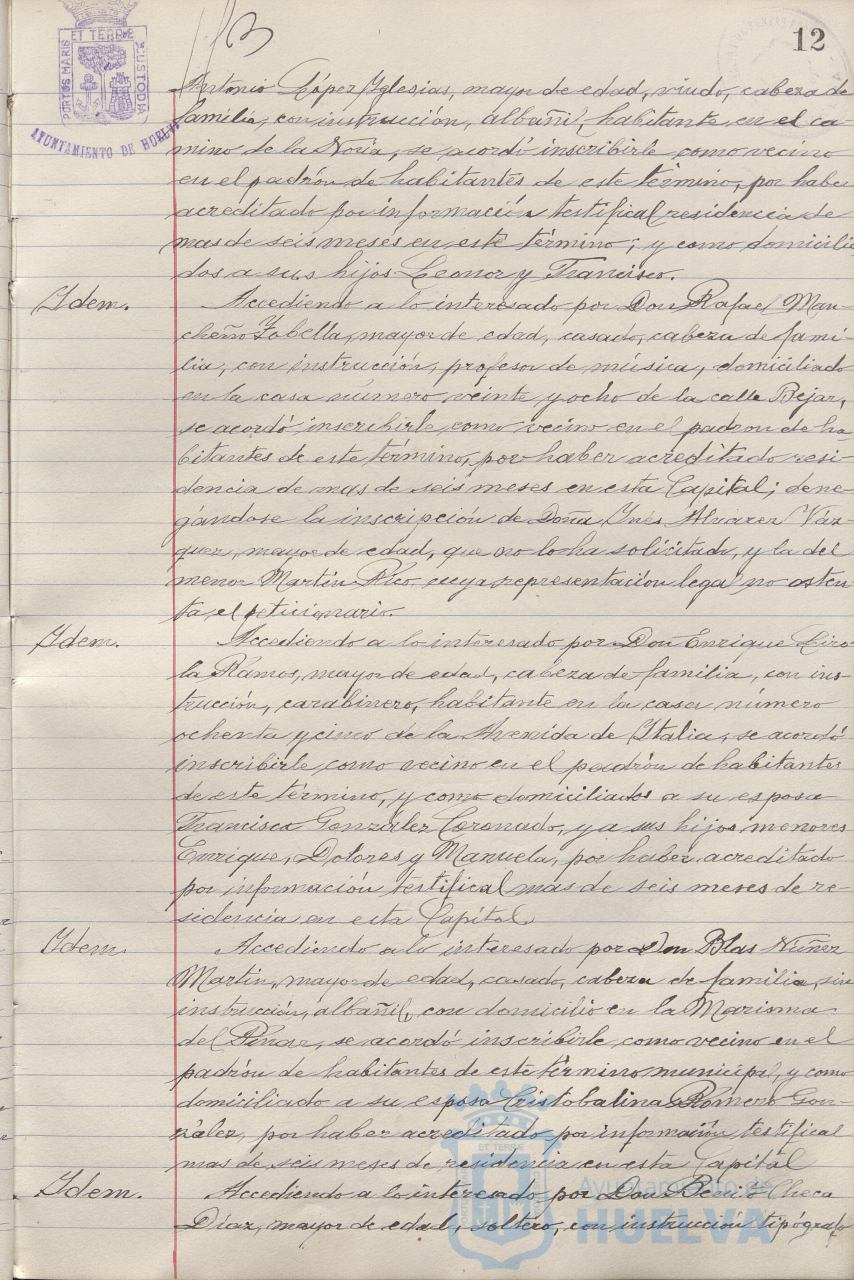 12
ET TERRE
PORTUS MARIS
CUSTODIA
AYUNTAMIENTO DE HUELVA
Antonio López Yglesias, mayor de edad, viudo, cabeza de
familia, con instrucción, albañil, habitante en el ca-
mino de la Noria, se acordó inscribirle como vecino
en el padrón de habitantes de este término, por haber
acreditado por información testifical residencia de
mas de seis meses en este término; y como domicilia
dos a sus hijos Leonor y Francisco.
Ydem.
Accediendo a lo interesado por Don Rafael Man-
cheño Zabella, mayor de edad, casado, cabeza de fami-
lia, con instrucción, profesor de música, domiciliado
en la casa número veinte y ocho de la calle Bejar,
se acordó inscribirle como vecino en el padron de ha-
bitantes de este término, por haber acreditado resi-
dencia de mas de seis meses en esta Capital; dene-
gándose la inscripción de Doña Ynés Alvarez Váz-
quez, mayor de edad, que no lo ha solicitado, y la del
menor Martín Rico cuya representación legal no osten
ta el peticionario.
Ydem.
Accediendo a lo interesado por Don Enrique Liro
la Ramos, mayor de edad, cabeza de familia, con ins-
trucción, carabinero, habitante en la casa número
ochenta y cinco de la Avenida de Italia, se acordó
inscribirle como vecino en el padrón de habitantes
de este término, y como domiciliados a su esposa
Francisca González Coronado, y a sus hijos menores
Enrique, Dolores y Manuela, por haber acreditado
por información testifical mas de seis meses de re-
sidencia en esta Capital
Ydem.
Accediendo a lo interesado por Don Blas Núñez
Martin, mayor de edad, casado, cabeza de familia, sin
instrucción, albañil, con domicilio en la Marisma
del Pinar, se acordó inscribirle como vecino en el
padrón de habitantes de este término municipal, y como
domiciliado a su esposa Cristobalina Romero Gon-
zález, por haber acreditado por información testifical
mas de seis meses de residencia en esta Capital
Ydem.
Accediendo a lo interesado por Don Benito Checa
Díaz, mayor de edad, soltero, con instrucción tipógrafo
Ayuntamiento de
HUELVA